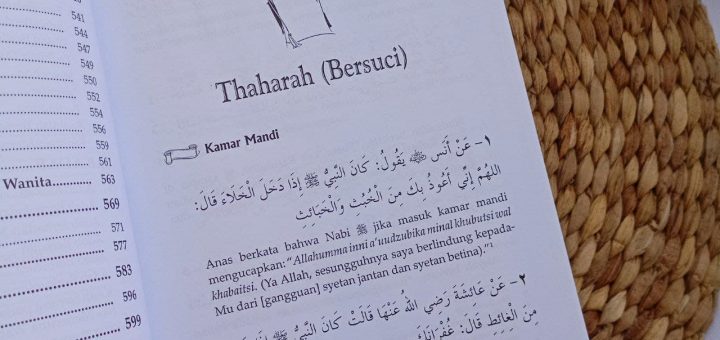 541
544
547
549
550
552
554
556
559
561
Wanita............ 563
569
571
577
583
596
599
Thaharah (Bersuci)
Kamar Mandi
١- عَنْ أَنَسٍ ﷺ يَقُولُ: كَانَ النَّبِيُّ ﷺ إِذَا دَخَلَ الْخَلَاءَ قَالَ:
اللهُمَّ إِنِّي أَعُوذُ بِكَ مِنَ الْخُبُثِ وَالْخَبَائِثِ
Anas berkata bahwa Nabi ﷺ jika masuk kamar mandi
mengucapkan: “Allahumma inni a'uudzubika minal khubutsi wal
khabaitsi. (Ya Allah, sesungguhnya saya berlindung kepada-
Mu dari [gangguan] syetan jantan dan syetan betina).”1
٢- عَنْ عَائِشَةَ رَضِيَ اللهُ عَنْهَا قَالَتْ كَانَ النَّبِيُّ ﷺ
مِنَ الْغَائِطِ قَالَ: غُفْرَانَكَ